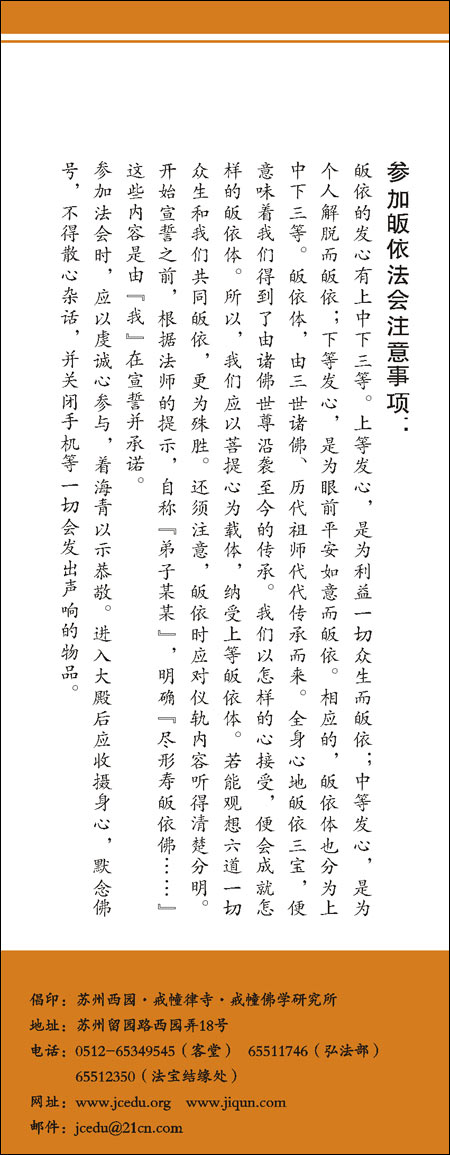 参加皈依法会注意事项：
皈依的发心有上中下三等。上等发心，是为利益一切众生而皈依；中等发心，是为
个人解脱而皈依；下等发心，是为眼前平安如意而皈依。相应的，皈依体也分为上
中下三等。皈依体，由三世诸佛、历代祖师代代传承而来。全身心地皈依三宝，便
意味着我们得到了由诸佛世尊沿袭至今的传承。我们以怎样的心接受，便会成就怎
样的皈依体。所以，我们应以菩提心为载体，纳受上等皈依体。若能观想六道一切
众生和我们共同皈依，更为殊胜。还须注意，皈依时应对仪轨内容听得清楚分明。
开始宣誓之前，根据法师的提示，自称『弟子某某』，明确『尽形寿皈依佛……』
这些内容是由『我』在宣誓并承诺。
参加法会时，应以虔诚心参与，着海青以示恭敬。进入大殿后应收摄身心，默念佛
号，不得散心杂话，并关闭手机等一切会发出声响的物品。
倡印：苏州西园·戒幢律寺·戒幢佛学研究所
地址：苏州留园路西园弄18号
电话：0512-65349545（客堂） 65511746（弘法部）
65512350（法宝结缘处）
网址：www.jcedu.org www.jiqun.com
邮件：jcedu@21cn.com